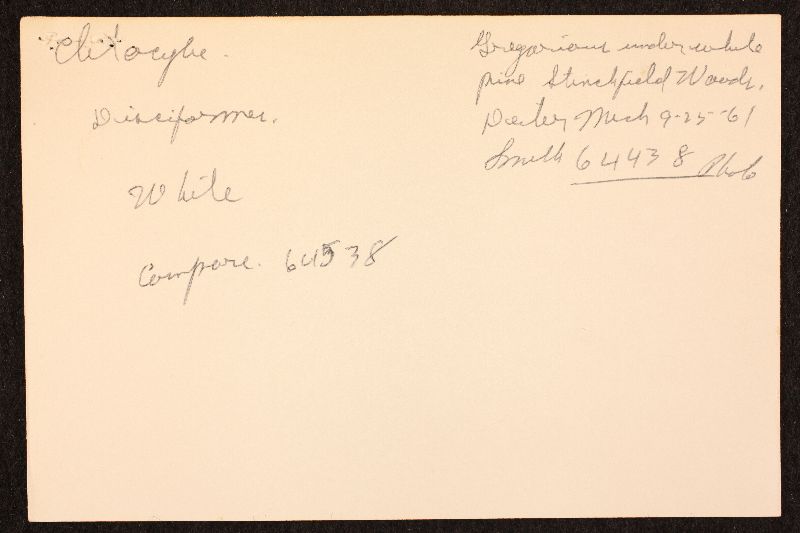 Clitocybe.
Disciformes.
White
Compare. 64538
Gregarious under white
pine Stinchfield Woods,
Dexter Mich 9-25-61
Smith 64438 Photo